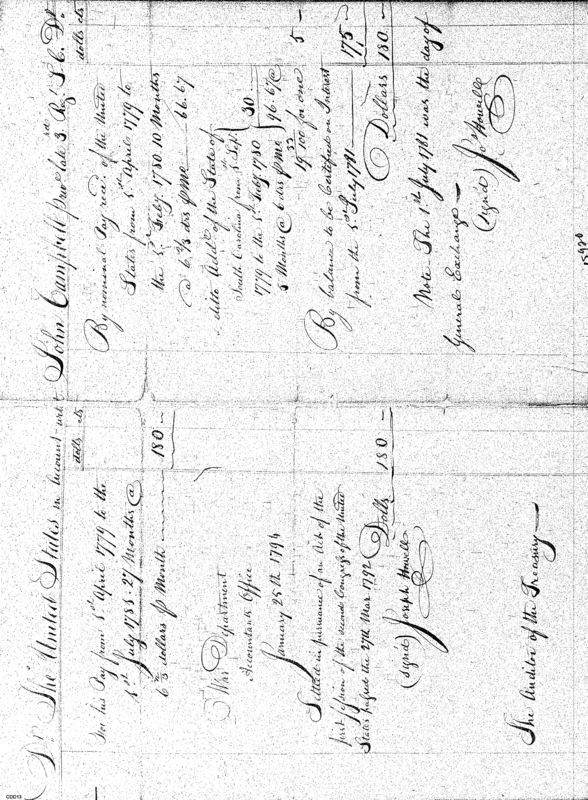 Dr. The United States in Account with John Campbell private late 3rd Regt. S. C. Cr.
dolls cts
For his Pay from 1st April 1779 to the
1st July 1781. 27 Months @
6 2/3 dollars p Month 180 —
War Department
Accountants Office
January 25th 1794
Settled in pursuance of an Act of the
first session of the second Congress of the United
States passed the 27th Mar 1792
Dolls 180 —
(signd) Joseph Howell
The Auditor of the Treasury
dolls cts
By nominal Pay recd. of the United
States from 1st April 1779 to
the 1st Feby 1780 10 Months
@ 6 2/3 drs p Mo. 66.67
ditto Addl. of the State of
South Carolina from 1 Sept
1779 to the 1st Feby 1780
5 Months @ 6 drs p Mo. 30
96.67 @
for one 5 —
By balance to be Certified on Interest
from the 1st July 1781 175 —
Dollars 180 —
Note The 1st July 1781 was the day of
General Exchange —
(signd) Jos Howell
15920
CDD13